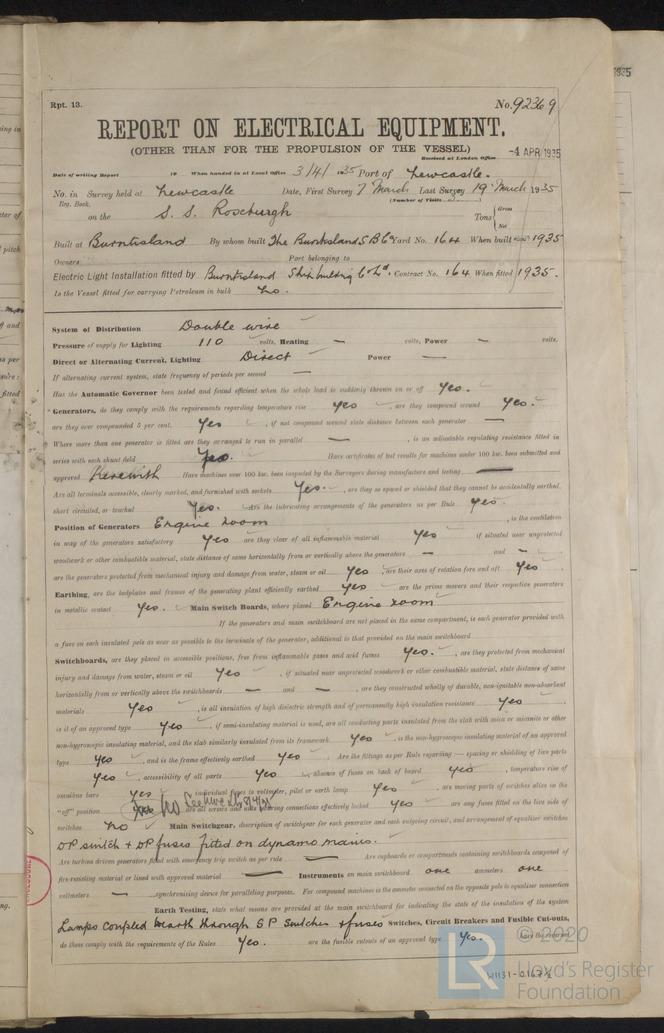 Rpt. 13.
No. 92369
REPORT ON ELECTRICAL EQUIPMENT.
(OTHER THAN FOR THE PROPULSION OF THE VESSEL)
Received at London Office -4 APR 1935
Date of writing Report 19 When handed in at Local Office 3/4/1935 Port of Newcastle.
No. in Survey held at Newcastle Date, First Survey 7 March Last Survey 19 March 1935
Reg. Book. (Number of Visits
on the S. S. Roxburgh Tons { Gross Net
Built at Burntisland By whom built The Burntisland S.B. Co. Yard No. 164 When built 1935
Owners Port belonging to
Electric Light Installation fitted by Burntisland Shipbuilding Co Ltd. Contract No. 164 When fitted 1935.
Is the Vessel fitted for carrying Petroleum in bulk No.
System of Distribution Double wire
Pressure of supply for Lighting 110 volts, Heating — volts, Power — volts.
Direct or Alternating Current, Lighting Direct Power —
If alternating current system, state frequency of periods per second —
Has the Automatic Governor been tested and found efficient when the whole load is suddenly thrown on or off Yes.
Generators, do they comply with the requirements regarding temperature rise Yes, are they compound wound Yes.
are they over compounded 5 per cent. Yes, if not compound wound state distance between each generator —
Where more than one generator is fitted are they arranged to run in parallel —, is an adjustable regulating resistance fitted in
series with each shunt field Yes. Have certificates of test results for machines under 100 kw. been submitted and
approved Herewith Have machines over 100 kw. been inspected by the Surveyors during manufacture and testing —
Are all terminals accessible, clearly marked, and furnished with sockets Yes., are they so spaced or shielded that they cannot be accidentally earthed,
short circuited, or touched Yes. Are the lubricating arrangements of the generators as per Rule Yes.
Position of Generators Engine room, is the ventilation
in way of the generators satisfactory Yes are they clear of all inflammable material Yes if situated near unprotected
woodwork or other combustible material, state distance of same horizontally from or vertically above the generators — and —,
are the generators protected from mechanical injury and damage from water, steam or oil Yes, are their axes of rotation fore and aft Yes
Earthing, are the bedplates and frames of the generating plant efficiently earthed Yes are the prime movers and their respective generators
in metallic contact Yes. Main Switch Boards, where placed Engine room
If the generators and main switchboard are not placed in the same compartment, is each generator provided with
a fuse on each insulated pole as near as possible to the terminals of the generator, additional to that provided on the main switchboard
Switchboards, are they placed in accessible positions, free from inflammable gases and acid fumes Yes., are they protected from mechanical
injury and damage from water, steam or oil Yes, if situated near unprotected woodwork or other combustible material, state distance of same
horizontally from or vertically above the switchboards — and —, are they constructed wholly of durable, non-ignitable non-absorbent
materials Yes, is all insulation of high dielectric strength and of permanently high insulation resistance Yes,
is it of an approved type Yes, if semi-insulating material is used, are all conducting parts insulated from the slab with mica or micanite or other
non-hygroscopic insulating material, and the slab similarly insulated from its framework Yes, is the non-hygroscopic insulating material of an approved
type Yes, and is the frame effectively earthed Yes. Are the fittings as per Rule regarding:— spacing or shielding of live parts
Yes, accessibility of all parts Yes, absence of fuses on back of board Yes, temperature rise of
omnibus bars Yes, individual fuses to voltmeter, pilot or earth lamp Yes, are moving parts of switches alive in the
"off" position No are all screws and nuts securing connections effectively locked Yes are any fuses fitted on the live side of
switches No Main Switchgear, description of switchgear for each generator and each outgoing circuit, and arrangement of equaliser switches
DP switch + DP fuses fitted on dynamo mains.
Are turbine driven generators fitted with emergency trip switch as per rule — Are cupboards or compartments containing switchboards composed of
fire-resisting material or lined with approved material — Instruments on main switchboard one ammeters one
voltmeters — synchronising device for paralleling purposes. For compound machines is the ammeter connected on the opposite pole to equaliser connection
Earth Testing, state what means are provided at the main switchboard for indicating the state of the insulation of the system
Lamps coupled to earth through S P switches + fuses Switches, Circuit Breakers and Fusible Cut-outs,
do these comply with the requirements of the Rules Yes. are the fusible cutouts of an approved type Yes. have the reversed
© 2020
LR
Lloyd's Register
Foundation